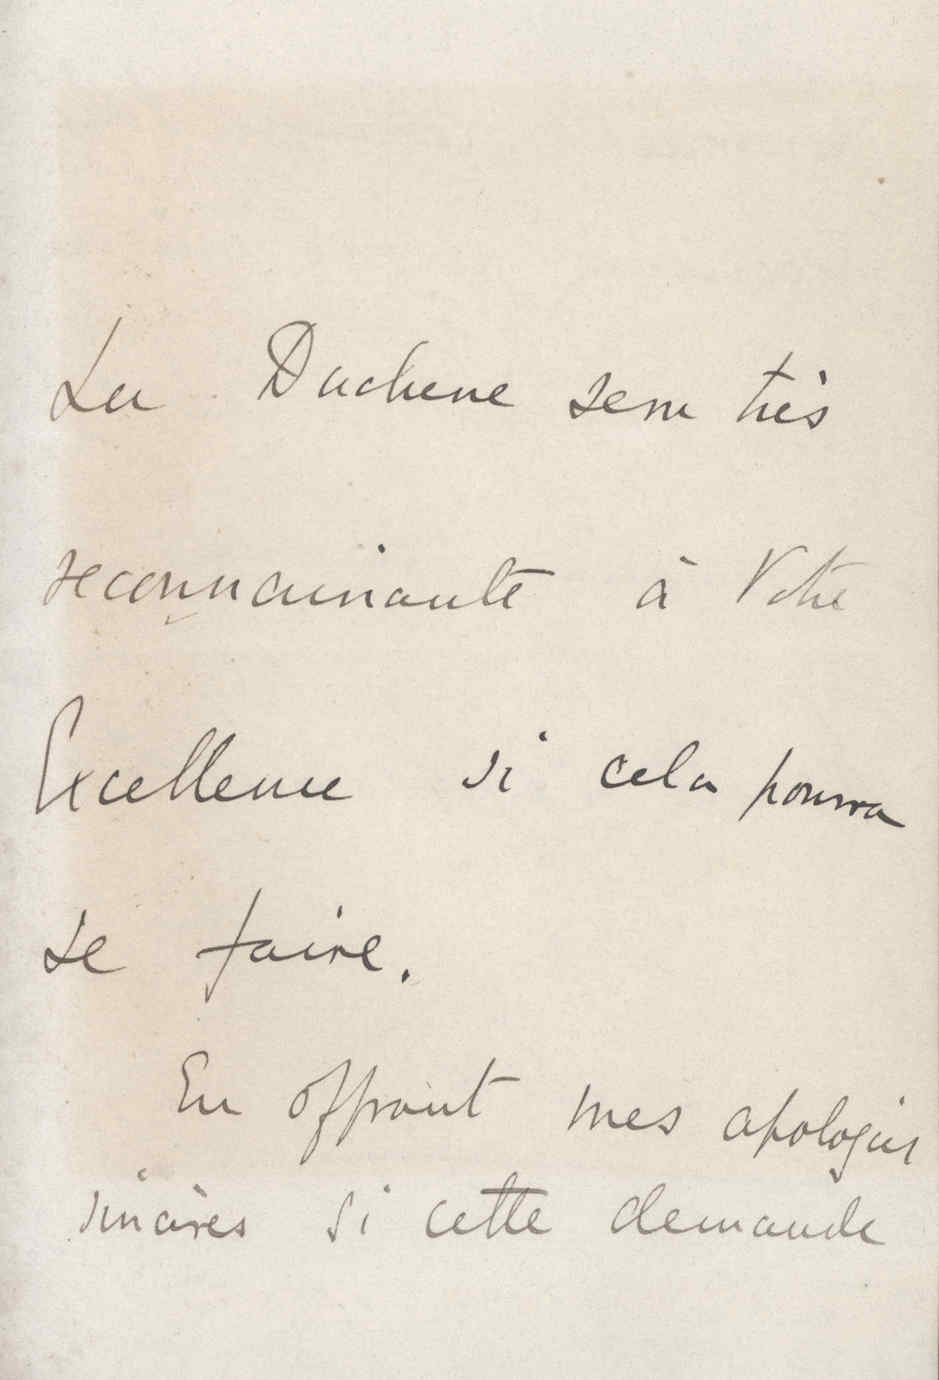 La Duchesse sera très
reconnaissante à Votre
Excellence si cela pourra
se faire.
En offrant mes apologies
sincères si cette demande